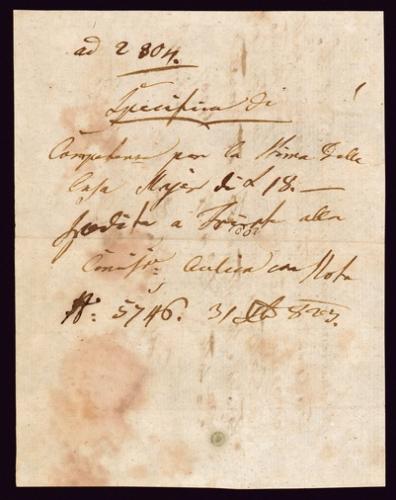 ad 2804.
Specifica di
Competenze per la stima della
Casa Major di £ 18. —
spedita a Trieste alla
Commiss. Aulica con Nota
N.: 5746. 31 823.